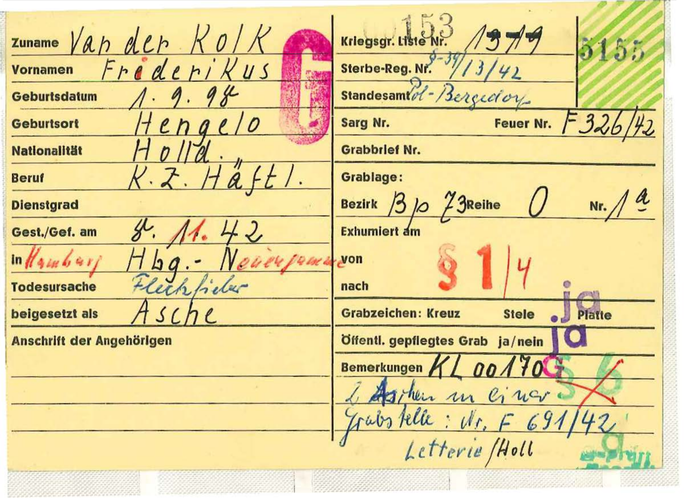 Zuname Van der Kolk
Vornamen Friderikus
Geburtsdatum 1. 9. 98
Geburtsort Hengelo
Nationalität Holld.
Beruf K. Z. Häftl.
Dienstgrad
Gest./Gef. am 8. 11. 42
in Hamburg Hbg.- Neuengamme
Todesursache Fleckfieber
beigesetzt als Asche
Anschrift der Angehörigen
G
153
Kriegsgr. Liste Nr. 1319
5155
Sterbe-Reg. Nr. 9-39/13/42
Standesamt Pol-Bergedorf
Sarg Nr. Feuer Nr. F 326/42
Grabbrief Nr.
Grablage:
Bezirk Bp 73 Reihe O Nr. 1a
Exhumiert am
von
§ 1/4
nach
ja
Grabzeichen: Kreuz Stele Platte
Öffentl. gepflegtes Grab ja/nein ja
Bemerkungen KL 00170 G
§ 6
2 Aschen in einer
Grabstelle: Nr. F 691/42
Letterie/Holl